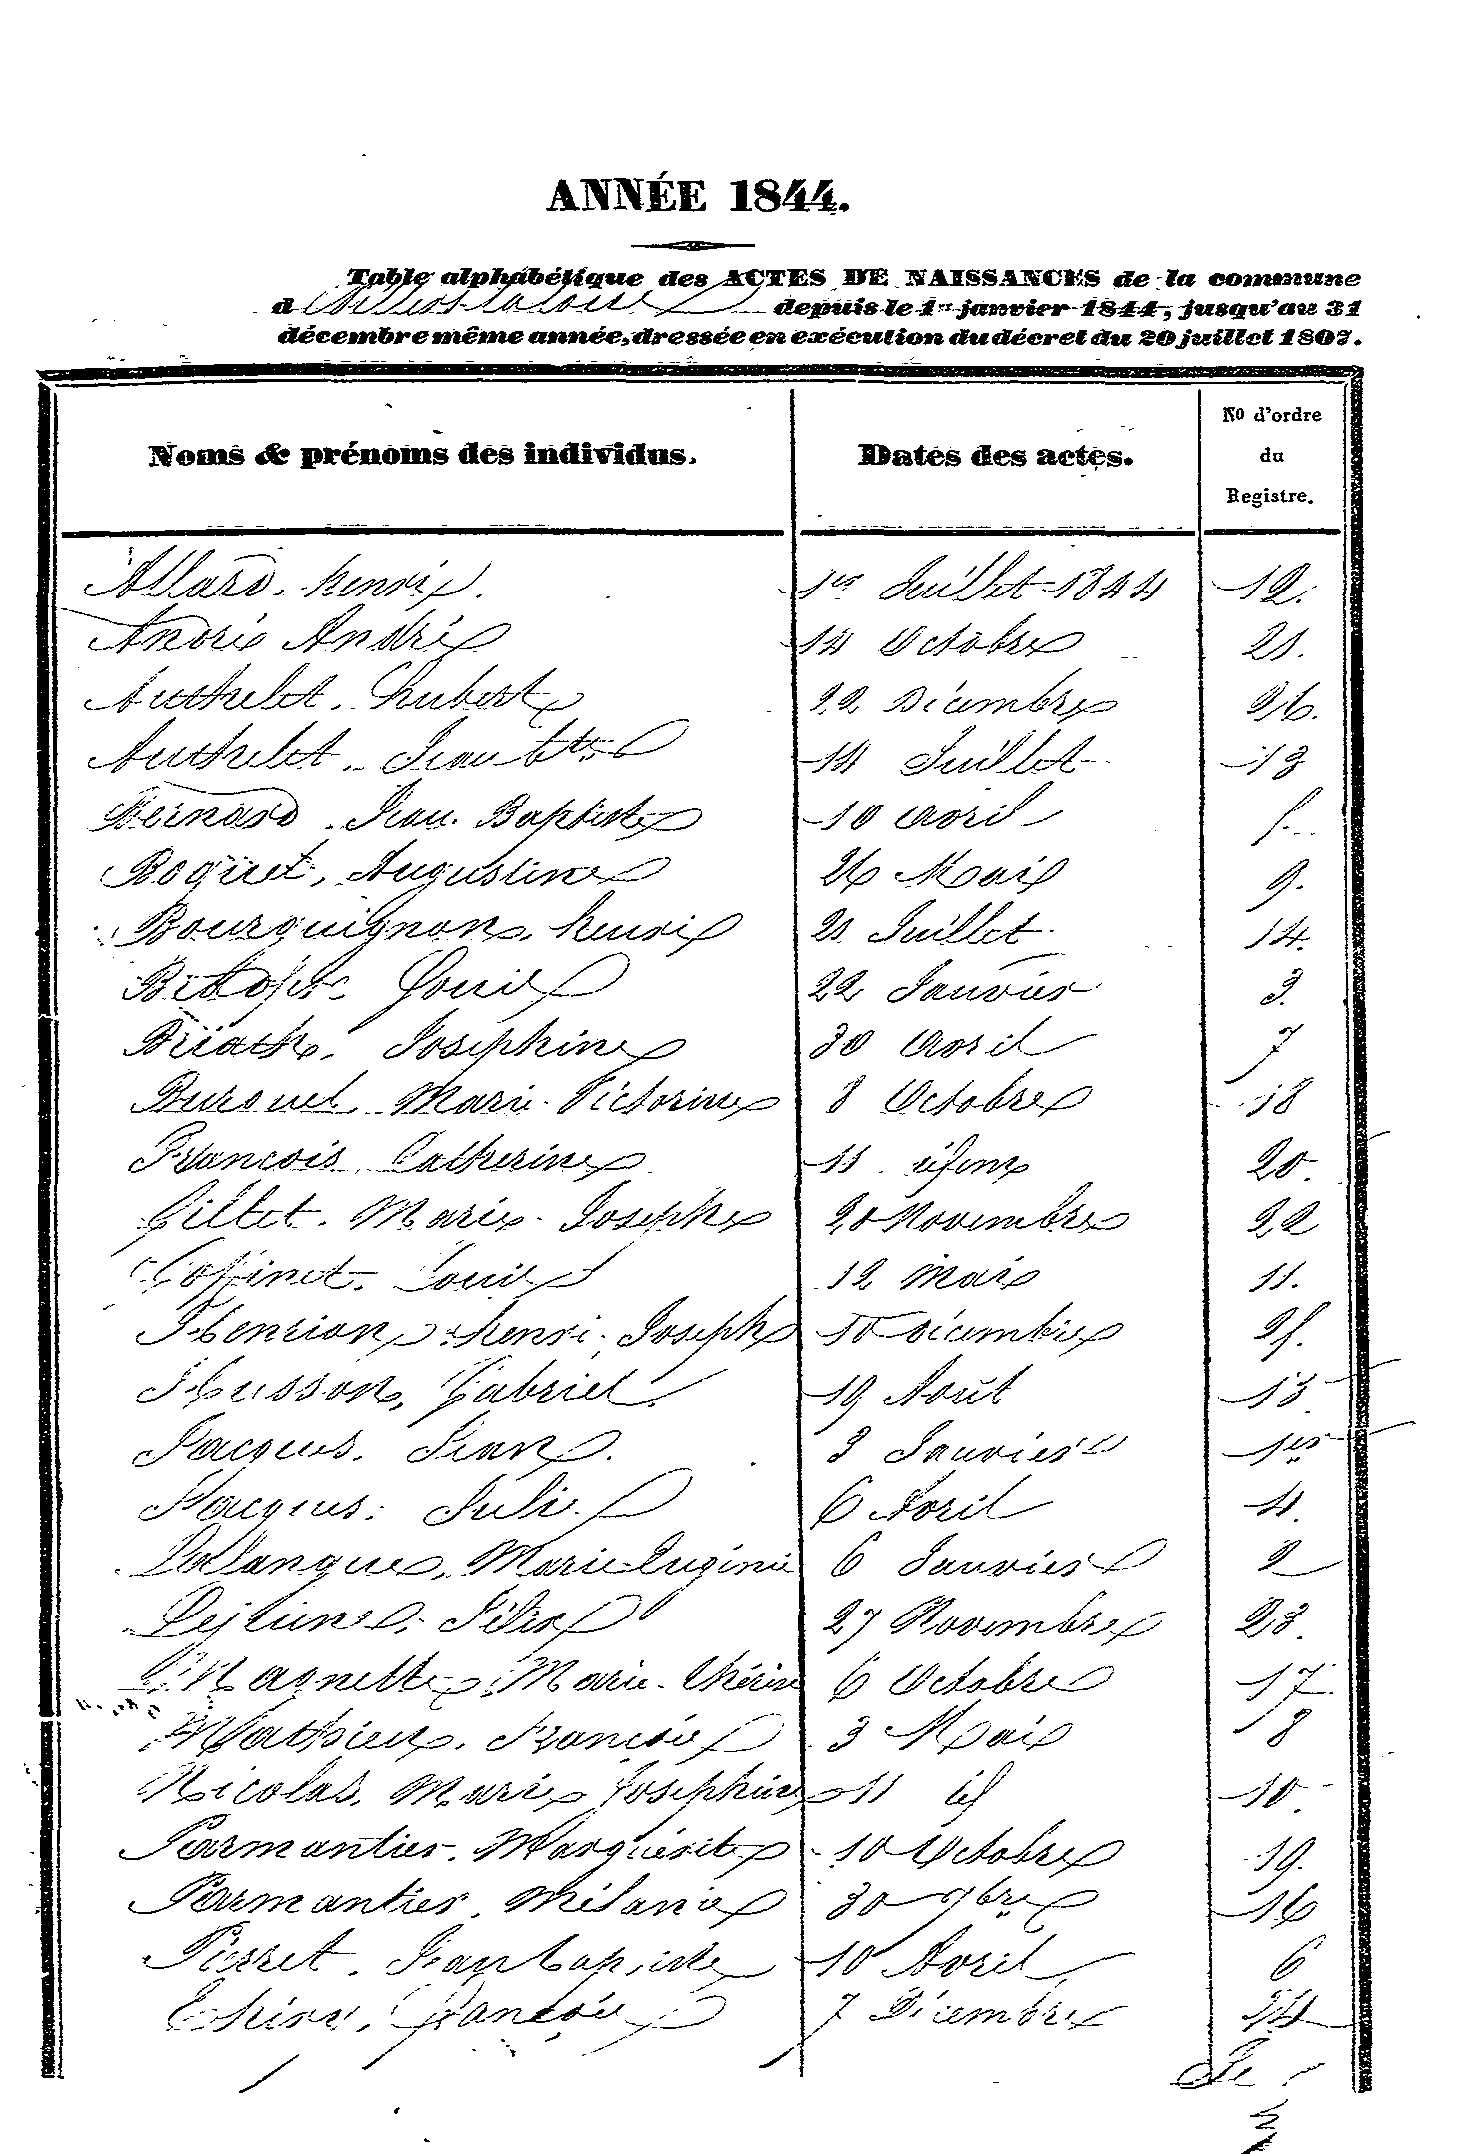 ANNÉE 1844.
Table alphabétique des ACTES DE NAISSANCES de la commune
d depuis le 1er janvier 1844, jusqu'au 31
décembre même année, dressée en exécution du décret du 20 juillet 1807.
Noms & prénoms des individus. Dates des actes. No d'ordre du Registre.
Allard. henri. 1er Juillet 1844 12.
André André 14 Octobre 21.
Authelet. hubert 22 Décembre 26.
Authelet. Jean bte 14 Juillet 13
Bernard. Jean. Baptiste 10 avril 5.
Boquet, Augustine 26 Mai 9.
Bourguignon, henri 21 Juillet 14.
Louis 22 Janvier 3.
Josephine 30 avril 7
Marie Victorine 8 Octobre 18
Francois Catherine 11 idem 20
Gillet. Marie. Josephe 20 Novembre 22
Goffinet. Louis 12 mai 11.
Henrion henri. Joseph 10 décembre 25.
Husson, Gabriel 19 Août 15
Jacques. Jean 3 Janvier 1er
Jacques. Julie 6 Avril 4
Marie Eugénie 6 Janvier 2
Lejeune. 27 Novembre 23
Magnette, Marie. thérèse 6 Octobre 17
Mathieu, François 3 Mai 8
Nicolas, Marie Josephine 11 id 10
Parmantier. Marguerite 10 Octobre 19.
Parmantier. Mélanie 30 7bre 16
Pierret. Jean baptiste 10 Avril 6
François 7 Décembre 24